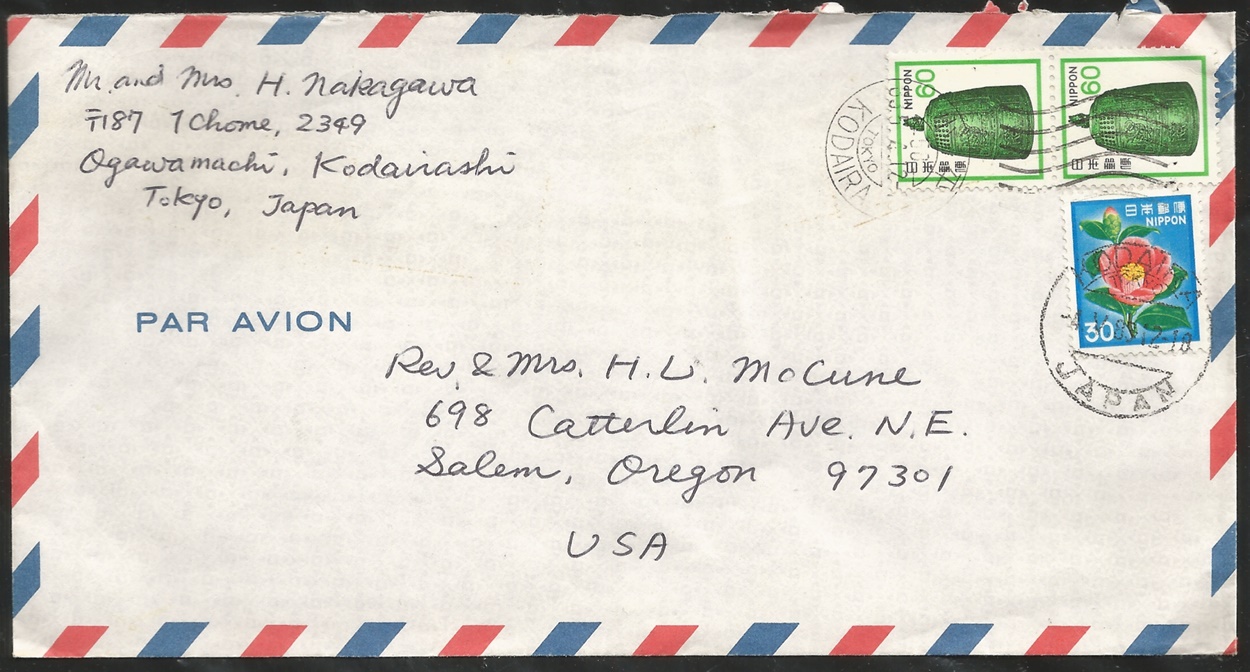 Mr. and Mrs. H. Nakagawa
〒187 1 Chome, 2349
Ogawamachi, Kodairashi
Tokyo, Japan
NIPPON
60
日本郵便
NIPPON
60
日本郵便
KODAIRA
TOKYO
日本郵便
NIPPON
30
KODAIRA
JAPAN
PAR AVION
Rev. & Mrs. H. L. McCune
698 Catterlin Ave. N.E.
Salem, Oregon 97301
USA